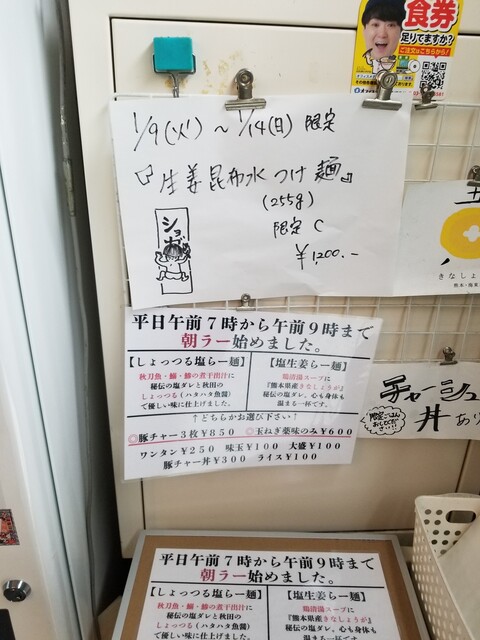 食券
足りてますか?
ご注文はこちらから!
1/9(火)~1/14(日) 限定
『生姜昆布水つけ麺』
(255g)
限定 C
¥1,200.-
ショガ
きなしょ
チャーシュ
丼 あり
限定ごはん
平日午前7時から午前9時まで
朝ラー始めました。
【しょっつる塩らー麺】
秋刀魚・鰯・鯵の煮干出汁に
秘伝の塩ダレと秋田の
しょっつる(ハタハタ魚醤)
で優しい味に仕上げました。
【塩生姜らー麺】
鶏清湯スープに
『熊本県産きなしょうが』
秘伝の塩ダレ。心も身体も
温まる一杯です。
↑どちらかお選び下さい↑
◎豚チャー3枚¥850 ◎玉ねぎ薬味のみ¥600
ワンタン¥250 味玉¥100 大盛¥100
豚チャー丼¥300 ライス¥100
平日午前7時から午前9時まで
朝ラー始めました。
【しょっつる塩らー麺】
秋刀魚・鰯・鯵の煮干出汁に
秘伝の塩ダレと秋田の
しょっつる(ハタハタ魚醤)
で優しい味に仕上げました。
【塩生姜らー麺】
鶏清湯スープに
『熊本県産きなしょうが』
秘伝の塩ダレ。心も身体も
温まる一杯です。